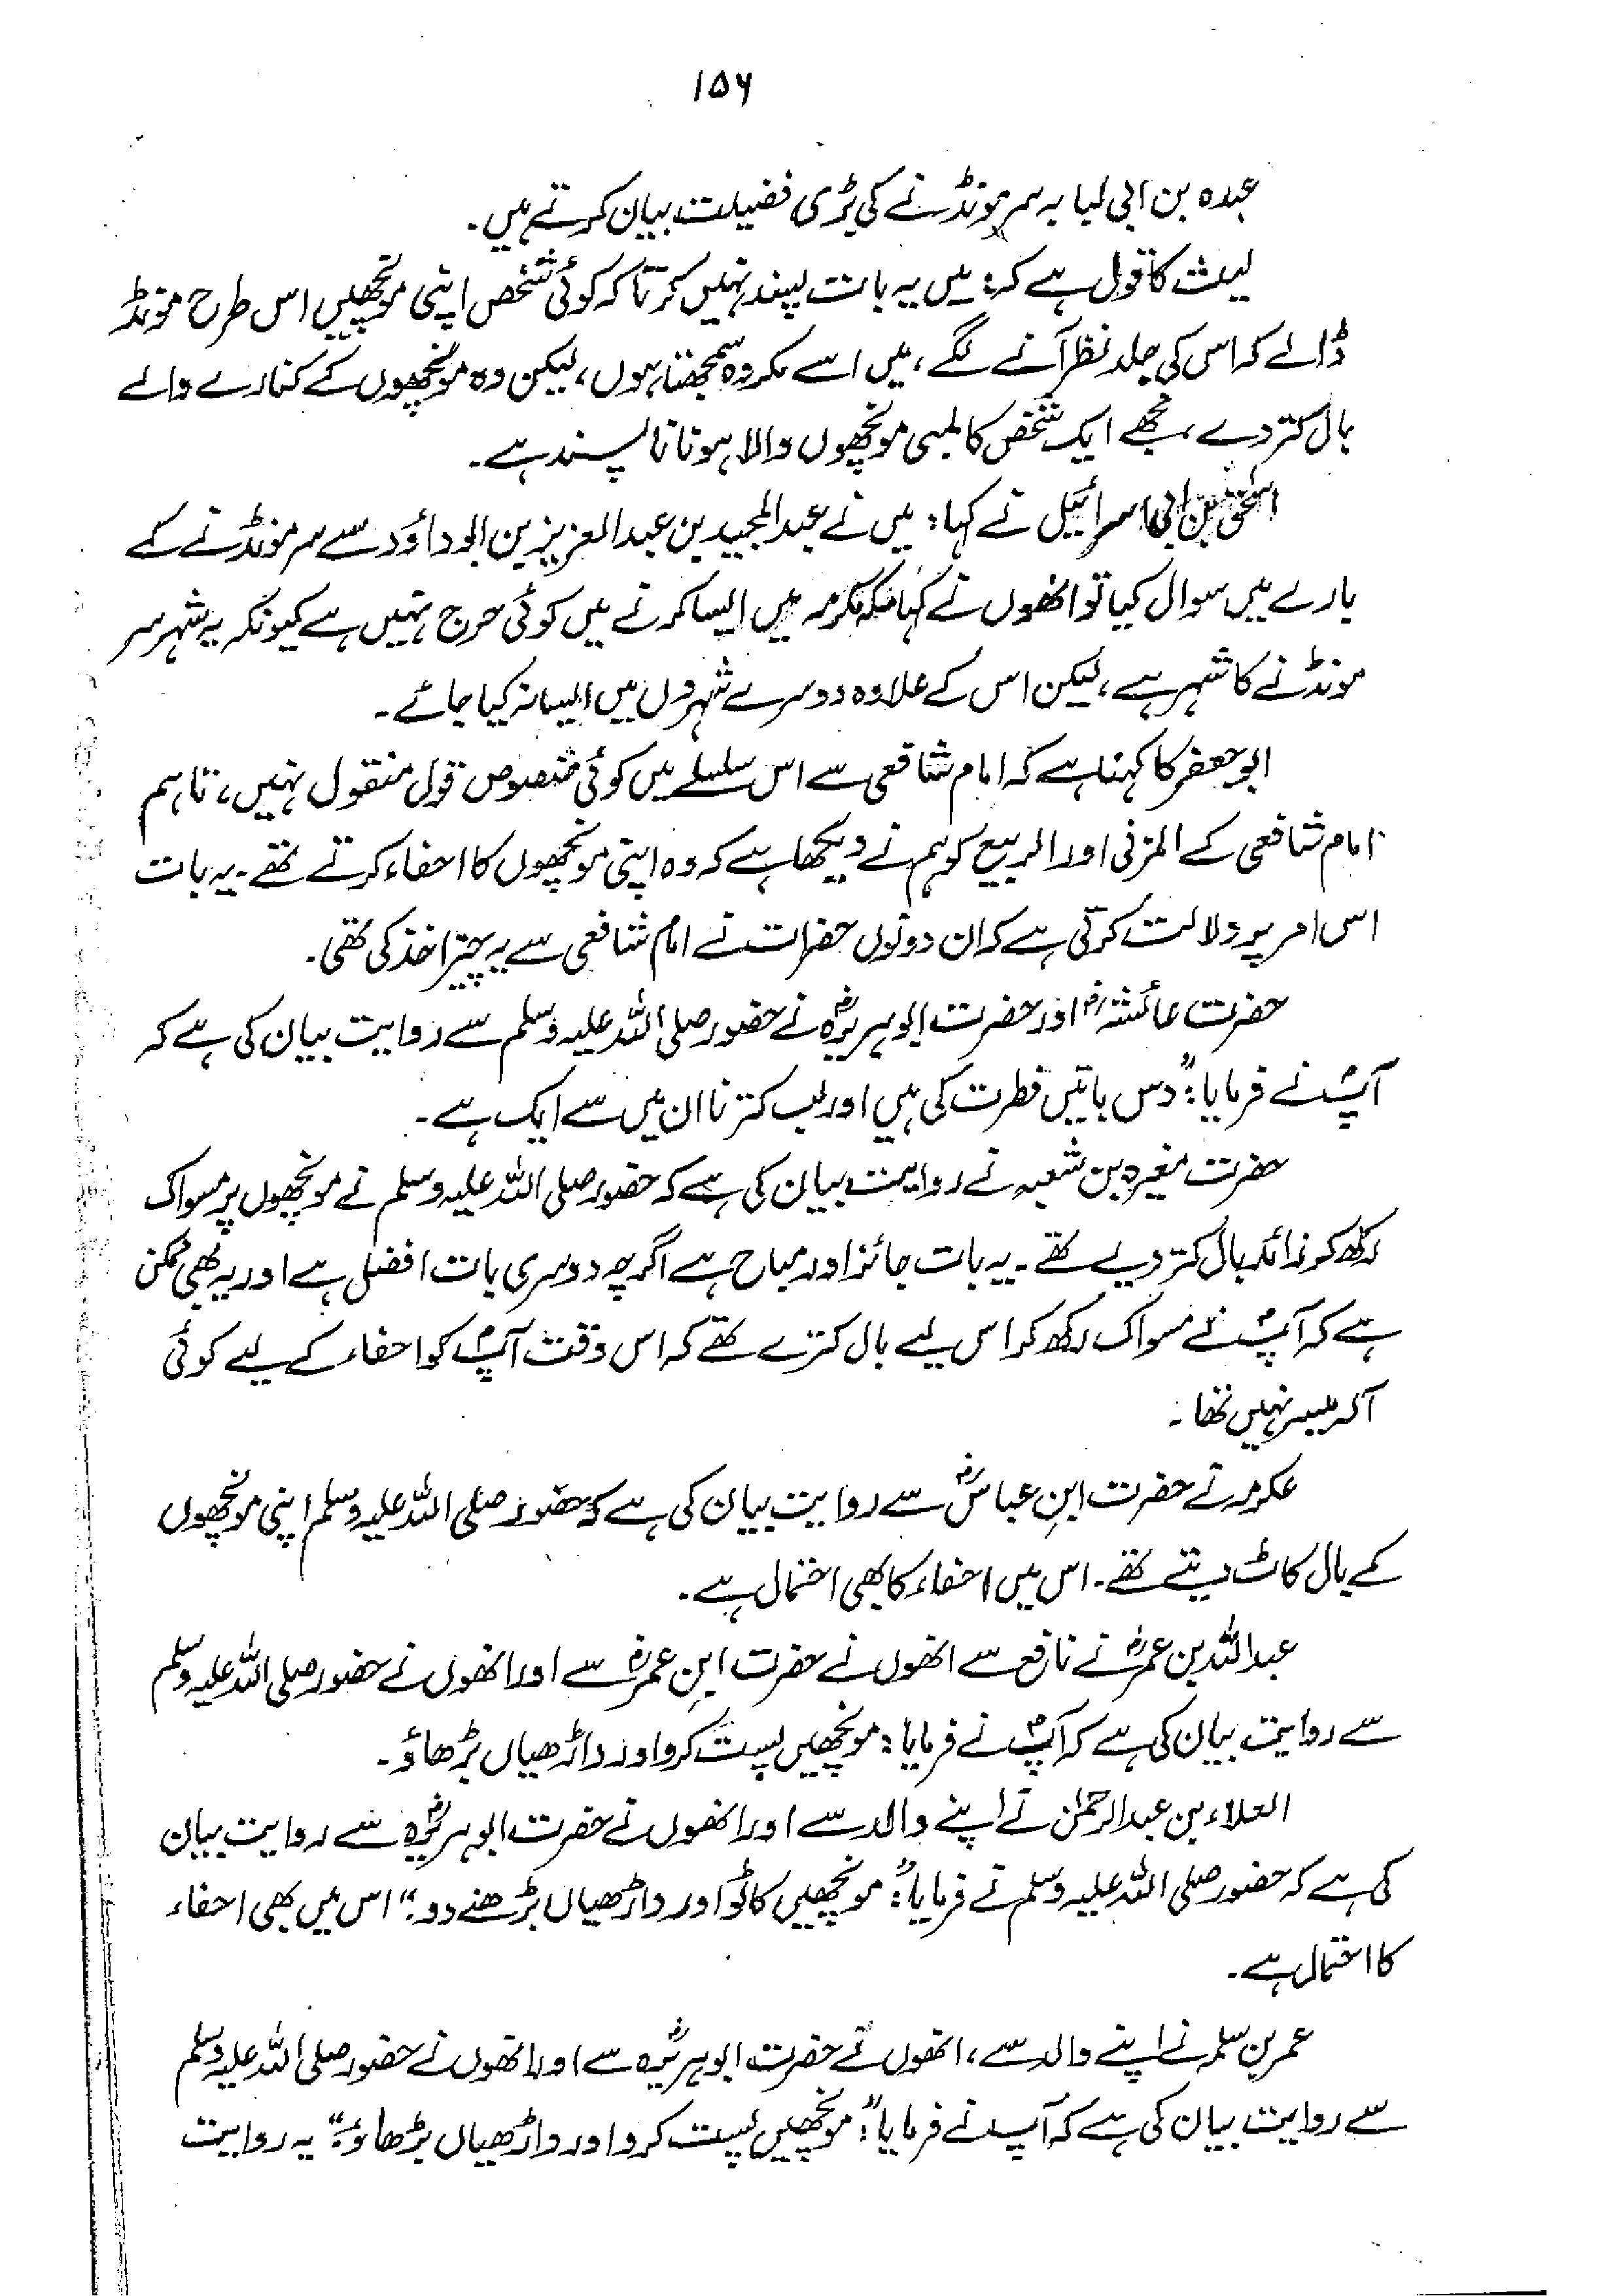 ۱۵۶
عبدہ بن ابی لبابہ سر مونڈنے کی بڑی فضیلت بیان کرتے ہیں۔
لیث کا قول ہے کہ: میں یہ بات پسند نہیں کرتا کہ کوئی شخص اپنی مونچھیں اس طرح مونڈ
ڈالے کہ اس کی جلد نظر آنے لگے، میں اسے مکروہ سمجھتا ہوں، لیکن وہ مونچھوں کے کنارے والے
بال کتر دے، مجھے ایک شخص کا لمبی مونچھوں والا ہونا ناپسند ہے۔
اسحٰق بن ابی اسرائیل نے کہا: میں نے عبدالمجید بن عبدالعزیز بن ابو داؤد سے سر مونڈنے کے
بارے میں سوال کیا تو انھوں نے کہا مکہ مکرمہ میں ایسا کرنے میں کوئی حرج نہیں ہے کیونکہ یہ شہر سر
مونڈنے کا شہر ہے، لیکن اس کے علاوہ دوسرے شہروں میں ایسا نہ کیا جائے۔
ابو جعفر کا کہنا ہے کہ امام شافعی سے اس سلسلے میں کوئی منصوص قول منقول نہیں، تاہم
امام شافعی کے المزنی اور الربیع کو ہم نے دیکھا ہے کہ وہ اپنی مونچھوں کا احفاء کرتے تھے۔ یہ بات
اس امر پر دلالت کرتی ہے کہ ان دونوں حضرات نے امام شافعی سے یہ چیز اخذ کی تھی۔
حضرت عائشہؓ اور حضرت ابوہریرہؓ نے حضور صلی اللہ علیہ وسلم سے روایت بیان کی ہے کہ
آپؐ نے فرمایا: "دس باتیں فطرت کی ہیں اور لب کترنا ان میں سے ایک ہے۔
حضرت مغیرہ بن شعبہ نے روایت بیان کی ہے کہ حضور صلی اللہ علیہ وسلم نے مونچھوں پر مسواک
رکھ کر زائد بال کتر دیے تھے۔ یہ بات جائز اور مباح ہے اگرچہ دوسری بات افضل ہے اور یہ بھی ممکن
ہے کہ آپؐ نے مسواک رکھ کر اس لیے بال کترے تھے کہ اس وقت آپؐ کو احفاء کے لیے کوئی
آلہ میسر نہیں تھا۔
عکرمہ نے حضرت ابنِ عباسؓ سے روایت بیان کی ہے کہ حضور صلی اللہ علیہ وسلم اپنی مونچھوں
کے بال کاٹ دیتے تھے۔ اس میں احفاء کا بھی احتمال ہے۔
عبداللہ بن عمرؓ نے نافع سے انھوں نے حضرت ابنِ عمرؓ سے اور انھوں نے حضور صلی اللہ علیہ وسلم
سے روایت بیان کی ہے کہ آپؐ نے فرمایا: مونچھیں پست کرو اور داڑھیاں بڑھاؤ۔
العلاء بن عبدالرحمٰن نے اپنے والد سے اور انھوں نے حضرت ابوہریرہؓ سے روایت بیان
کی ہے کہ حضور صلی اللہ علیہ وسلم نے فرمایا: "مونچھیں کاٹو اور داڑھیاں بڑھنے دو۔" اس میں بھی احفاء
کا احتمال ہے۔
عمر بن سلمہ نے اپنے والد سے، انھوں نے حضرت ابوہریرہؓ سے اور انھوں نے حضور صلی اللہ علیہ وسلم
سے روایت بیان کی ہے کہ آپ نے فرمایا: "مونچھیں پست کرو اور داڑھیاں بڑھاؤ۔" یہ روایت